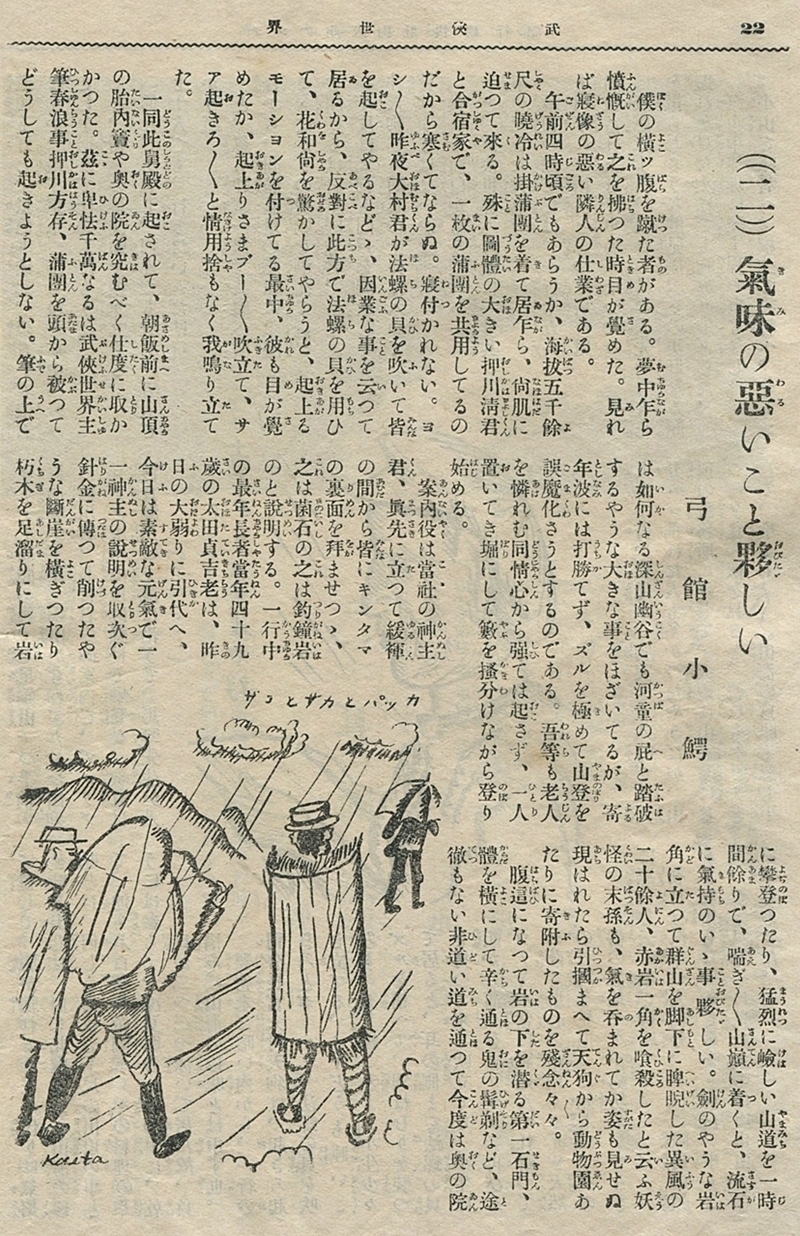 武俠世界
22
(二)氣味の惡いこと夥しい
弓館小鰐
僕の橫ッ腹を蹴た者がある。夢中乍ら
憤慨して之を拂つた時目が覺めた。見れ
ば寢像の惡い隣人の仕業である。
午前四時頃でもあらうか、海拔五千餘
尺の曉冷は掛蒲團を着て居乍ら、尙肌に
迫つて來る。殊に圖體の大きい押川淸君
と合宿家で、一枚の蒲團を共用してるの
だから寒くてならぬ。寢付かれない。ヨ
シ〳〵昨夜大村君が法螺の貝を吹いて皆
を起してやるなどゝ、因業な事を云つて
居るから、反對に此方で法螺の貝を用ひ
て、花和尙を驚かしてやらうと、起上る
モーションを付けてる最中、彼も目が覺
めたか、起上りさまブー〳〵吹立て、サ
ア起きろ〳〵と情用捨もなく我鳴り立て
た。
一同此舅殿に起されて、朝飯前に山頂
の胎內竇や奧の院を究むべく仕度に取か
かつた。茲に卑怯千萬なるは武俠世界主
筆春浪事押川方存、蒲團を頭から被つて
どうしても起きようとしない。筆の上で
は如何なる深山幽谷でも河童の屁と踏破
するやうな大きな事をほざいてるが、寄
年波には打勝てず、ズルを極めて山登を
誤魔化さうとするのである。吾等も老人
を憐れむ同情心から强ては起さず、一人
置いてき堀にして籔を搔分けながら登り
始める。
案內役は當社の神主
君、眞先に立つて緩褌
の間から皆にキンタマ
の裏面を拜ませつゝ、
之は菌石の之は釣鐘岩
のと說明する。一行中
の最年長者當年四十九
歲の太田貞吉老は、昨
日の大弱りに引代へ、
今日は素敵な元氣で一
一神主の說明を取次ぐ
針金に傳つて削つたや
うな斷崖を橫ぎつたり
朽木を足溜りにして岩
に攀登つたり、猛烈に嶮しい山道を一時
間餘りで、喘ぎ〳〵山巓に着くと、流石
に氣持のいゝ事夥しい。劍のやうな岩
角に立つて群山を脚下に睥睨した異風の
二十餘人、赤岩一角を喰殺したと云ふ妖
怪の末孫も、氣を呑まれてか姿も見せぬ
現はれたら引摑まへて天狗から動物園あ
たりに寄附したものを殘念々々。
腹這になつて岩の下を潜る第一石門、
體を橫にして辛く通る鬼の髯剃など、途
徹もない非道い道を通つて今度は奧の院
カッパとカサとゴザ
Kauta